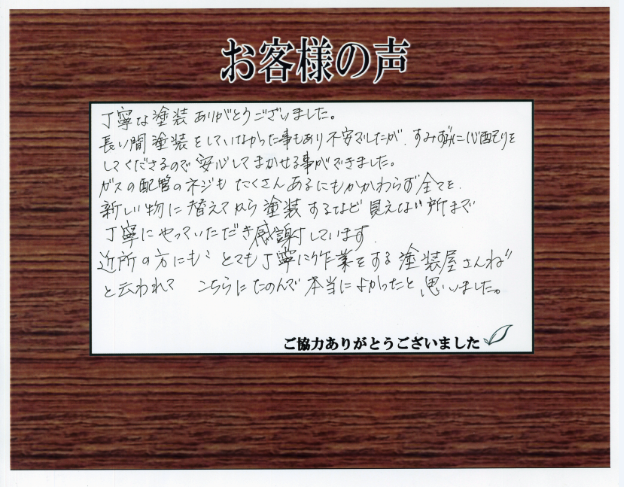 お客様の声
丁寧な塗装ありがとうございました。
長い間塗装をしていなかった事もあり不安でしたが、すみずみに心配りを
してくださるので安心してまかせる事ができました。
ガスの配管のネジもたくさんあるにもかかわらず全てを
新しい物に替えてから塗装するなど見えない所まで
丁寧にやっていただき感謝しています
近所の方にも、とても丁寧に作業をする塗装屋さんね"
と云われて こちらにたのんで本当によかったと思いました。
ご協力ありがとうございました